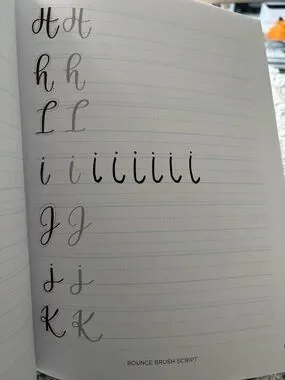 H H
h h
I I
i i i i i i i i
J J
j j
K K
BOUNCE BRUSH SCRIPT